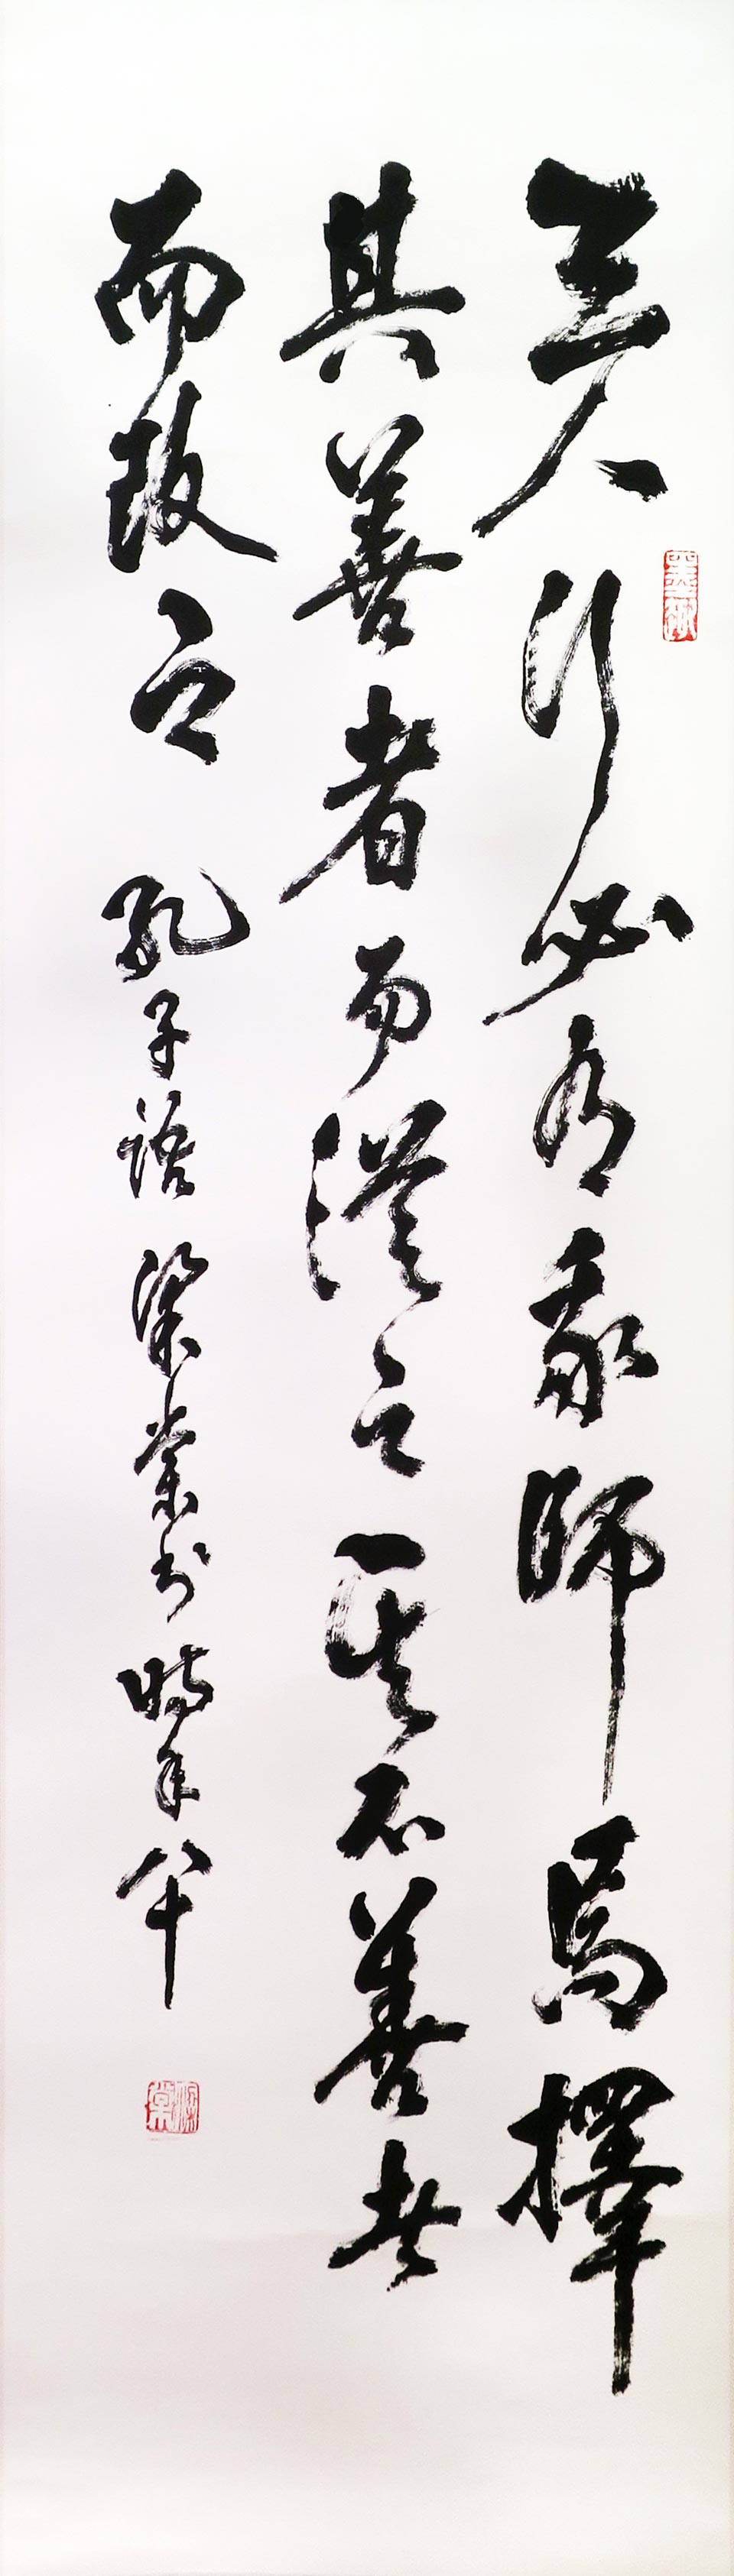 三人行必有我師焉擇
其善者而從之其不善者
而改之 孔子語 梁棠书 時年八十
梁棠